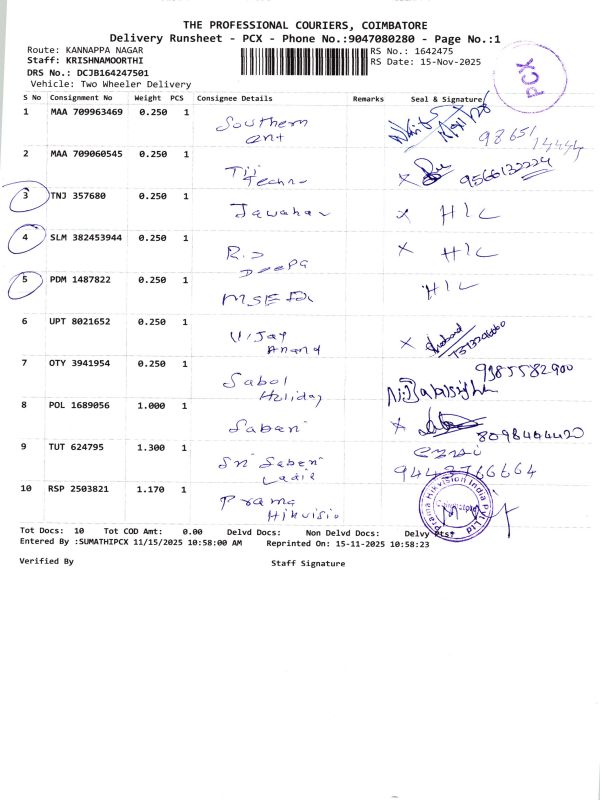 THE PROFESSIONAL COURIERS, COIMBATORE
Delivery Runsheet - PCX - Phone No.:9047080280 - Page No.:1
Route: KANNAPPA NAGAR RS No.: 1642475
Staff: KRISHNAMOORTHI RS Date: 15-Nov-2025
DRS No.: DCJB164247501
Vehicle: Two Wheeler Delivery
PCX
S No Consignment No Weight PCS Consignee Details Remarks Seal & Signature
1 MAA 709963469 0.250 1 Southern
ent 98651 14444
2 MAA 709060545 0.250 1 TII
Techno X 9566132224
3 TNJ 357680 0.250 1 Jawahar X H I C
4 SLM 382453944 0.250 1 R.S
Deepa X H I C
5 PDM 1487822 0.250 1 MSEFDr H I C
6 UPT 8021652 0.250 1 Vijay
Anand X
7 OTY 3941954 0.250 1 Sabol
Holiday 9385582900
8 POL 1689056 1.000 1 Sabari X 8098404420
9 TUT 624795 1.300 1 Sri Sabari
9443766664
10 RSP 2503821 1.170 1 Prama
Hikvisio
Prama Hikvision India Pvt Ltd
Tot Docs: 10 Tot COD Amt: 0.00 Delvd Docs: Non Delvd Docs: Delvy Pts:
Entered By :SUMATHIPCX 11/15/2025 10:58:00 AM Reprinted On: 15-11-2025 10:58:23
Verified By Staff Signature